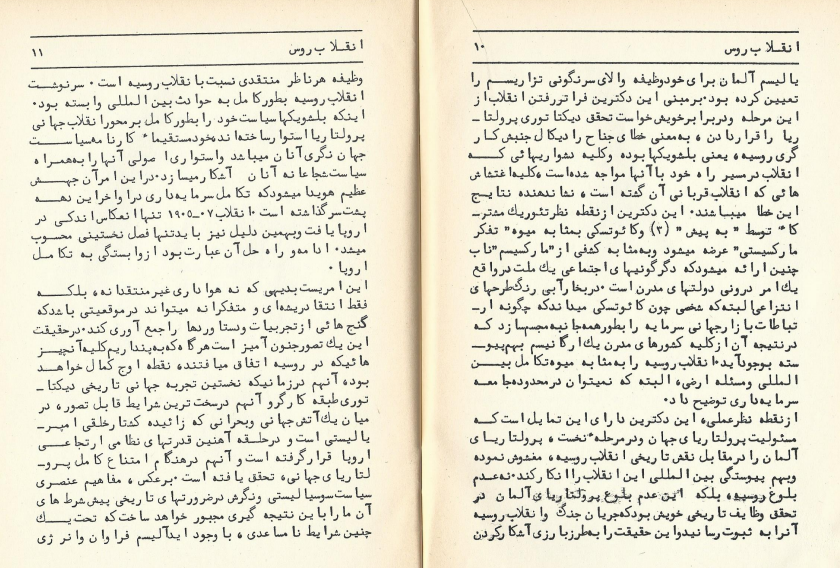 ۱۰ انقلاب روس
یالیسم آلمان برای خود وظیفه والای سرنگونی تزاریسم را
تعیین کرده بود. بر مبنی این دکترین فراتر رفتن انقلاب از
این مرحله و در برابر خویش خواست تحقق دیکتاتوری پرولتا_
ریا را قرار دادن، به معنی خطای جناح رادیکال جنبش کار
گری روسیه، یعنی بلشویکها بوده وکلیه دشواریهائی کـــه
انقلاب در مسیر راه خود با آنها مواجه شده است، کلیه اغتشاش
هائی که انقلاب قربانی آن گشته است، نشاندهنده نتایـج
این خطا میباشند. این دکترین از نقطه نظر تئوریك مشتر_
کا" توسط "به پیش" (۳) وکائوتسکی بمثابه میوه" تفکر
مارکسیستی" عرضه میشود و به مثابه کشفی از "مارکسیسم" ناب
چنین ارائه میشود که دگرگونیهای اجتماعی یك ملت در واقع
یك امر درونی دولتهای مدرن است. در بخار آبی رنگ طرحهای
انتزاعی البته که شخصی چون کائوتسکی میداند که چگونه ار_
تباطات بازار جهانی سرمایه را بطور همه جانبه مجسم سازد کـه
در نتیجه آن از کلیه کشورهای مدرن یك ارگانیسم بهم پیو_
سته بوجود آید. انقلاب روسیه را به مثابه میوه تکامل بیــن
المللی و مسئله ارضی، البته که نمیتوان در محدوده جامعه
سرمایه داری توضیح داد.
از نقطه نظر عملی، این دکترین دارای این تمایل است کــه
مسئولیت پرولتاریای جهان و در مرحله" نخست، پرولتاریای
آلمان را در مقابل نقش تاریخی انقلاب روسیه، مغشوش نموده
وبهم پیوستگی بین المللی این انقلاب را انکار کند. نه عدم
بلوغ روسیه، بلکه این عدم بلوغ پرولتاریای آلمان در
تحقق وظایف تاریخی خویش بود که جریان جنگ وانقلاب روسیه
آنرا به ثبوت رسانید و این حقیقت را به طرز بارزی آشکار کردن
انقلاب روس ۱۱
وظیفه هر ناظر منتقدی نسبت با نقلاب روسیه است. سرنوشت
انقلاب روسیه بطور کامل به حوادث بین المللی وابسته بود.
اینکه بلشویکها سیاست خود را بطور کامل بر محور انقلاب جهانی
پرولتاریا استوار ساخته اند، خود مستقیما" کارنامه سیاســـت
جهان نگری آنان میباشد واستواری اصولی آنها را به همراه
سیاست شجاعانه آنان آشکار میسازد. در این امر آن جهـــش
عظیم هویدا میشود که تکامل سرمایه داری در اواخر این دهـــه
پشت سر گذاشته است. انقلاب ۰۷_۱۹۰۵ تنها انعکاس اندکی در
اروپا یافت وبهمین دلیل نیز بایدتنها فصل نخستینی محسوب
میشد. ادامه و راه حل آن عبارت بود از وابستگی به تکامـل
اروپا.
این امریست بدیهی که نه هواداری غیر منتقدانه، بلکــــه
فقط انتقاد ریشه ای و متفکرانه میتواند در موقعیتی باشد که
گنج هائی از تجربیات ودستاوردها را جمع آوری کند. در حقیقت
این یك تصور جنون آمیز است هرگاه که به پنداریم کلیه آنچیز
هائیکه در روسیه اتفاق میافتند، نقطه اوج کمال خواهـــد
بود، آنهم در زمانیکه نخستین تجربه جهانی تاریخی دیکتا_
توری طبقه کارگر و آنهم در سخت ترین شرایط قابل تصور، در
میان یك آتش جهانی وبحرانی که زائیده کشتار خلقی امپر_
یالیستی است و در حلقه آهنین قدرتهای نظامی ارتجاعـــی
اروپا قرار گرفته است و آنهم در هنگام امتناع کامل پرو_
لتاریای جهانی، تحقق یافته است. برعکس، مفاهیم عنصری
سیاست سوسیالیستی ونگرش در ضرورتهای تاریخی پیش شرط های
آن ما را باین نتیجه گیری مجبور خواهد ساخت که تحت یـــك
چنین شرایط نامساعدی، با وجود ایدآلیسم فراوان وانرژی